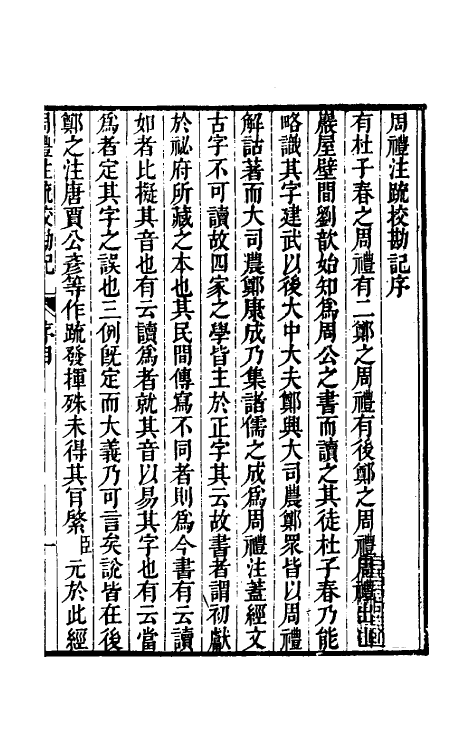 周禮注疏挍勘記序
有杜子春之周禮有二鄭之周禮有後鄭之周禮周禮出山
巖屋壁間劉歆始知爲周公之書而讀之其徒杜子春乃能
略識其字建武以後大中大夫鄭興大司農鄭眾皆以周禮
解詁著而大司農鄭康成乃集諸儒之成爲周禮注蓋經文
古字不可讀故四家之學皆主於正字其云故書者謂初獻
於祕府所藏之本也其民間傳寫不同者則爲今書有云讀
如者比擬其音也有云讀爲者就其音以易其字也有云當
爲者定其字之誤也三例既定而大義乃可言矣說皆在後
鄭之注唐賈公彥等作疏發揮殊未得其肎綮臣元於此經
周禮注疏挍勘記 序目 一